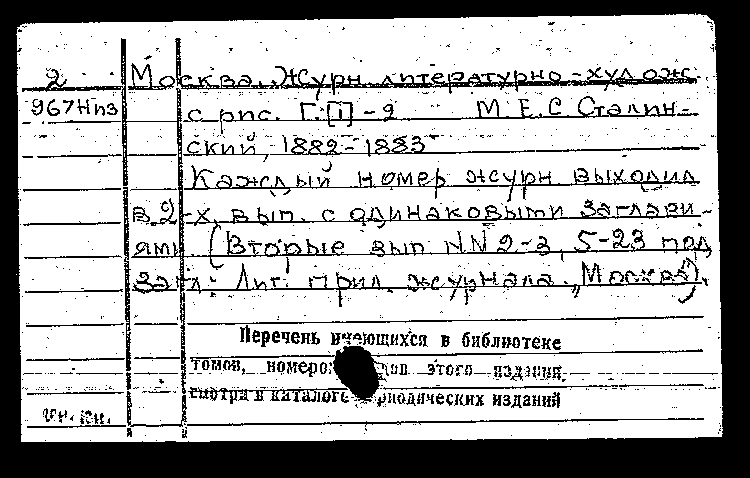 2 Москва. Журн. литературно-худож.
967Низ с рис. Г. [1]-2 М. Е. С. Сталин-
ский, 1882-1883
Каждый номер журн. выходил
в 2-х вып. с одинаковыми заглави-
ями. (Вторые вып. NN 2-3, 5-23 под
загл.: Лит. прил. журнала „Москва").
Перечень имеющихся в библиотеке
томов, этого издания
смотри в каталоге периодических изданий